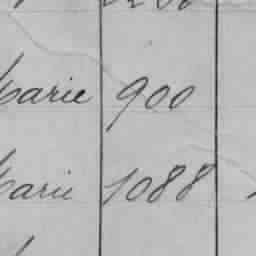 Marie 900
Marie 1088